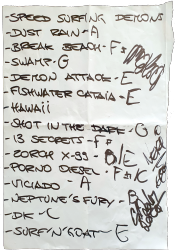 -SPEED SURFING DEMONS
-DUST RAIN-A
-BREAK BEACH-F#
-SWAMP-G
-DEMON ATTACK-E
-FISHWATER CATAIA-E
-HAWAII
-SHOT IN THE DARK-G
-13 SECRETS-F#
-ZORCH X-99-B/E
-PORNO DIESEL-F#/C
-VICIADO-A
-NEPTUNE'S FURY-
-DK-C
-SURF'N'GOAT-E